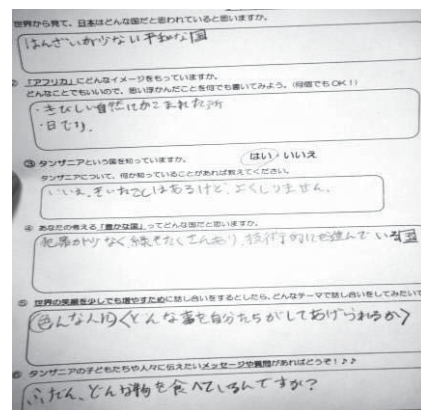 世界から見て、日本はどんな国だと思われていると思いますか。
はんざいが少ない平和な国
② 「アフリカ」にどんなイメージをもっていますか。
どんなことでもいいので、思い浮かんだことを何でも書いてみよう。(何個でもOK!)
・きびしい自然にかこまれた所
・日でり。
③ タンザニアという国を知っていますか。 はい・いいえ
タンザニアについて、何か知っていることがあれば教えてください。
いいえ、きいたことはあるけど、よくしりません。
④ あなたの考える「豊かな国」ってどんな国だと思いますか。
犯罪が少なく、緑もたくさんあり、技術的にも進んでいる国
⑤ 世界の笑顔を少しでも増やすために話し合いをするとしたら、どんなテーマで話し合いをしてみたいで
色んな人向〈どんな事を自分たちがしてあげられるか〉
⑥ タンザニアの子どもたちや人々に伝えたいメッセージや質問があればどうぞ!♪♪
ふだん、どんな物を食べているんですか?